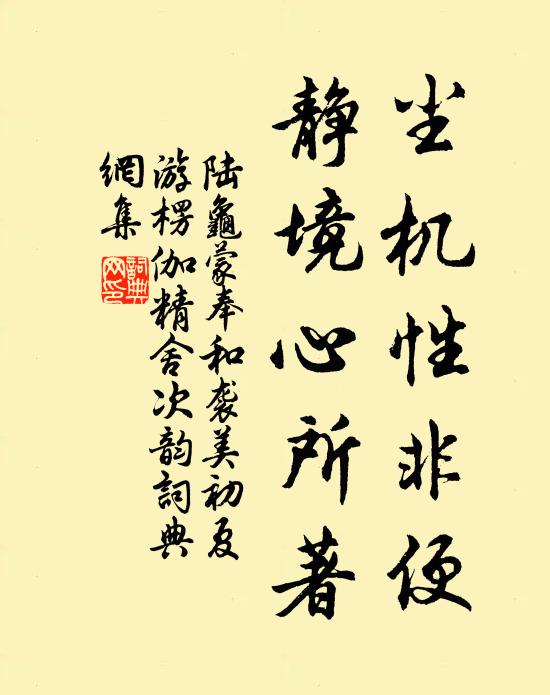 尘机性非便
静境心所著
陆龜蒙奉和袭美初夏
游楞伽精舍次韵詞典
網集
詞典網印